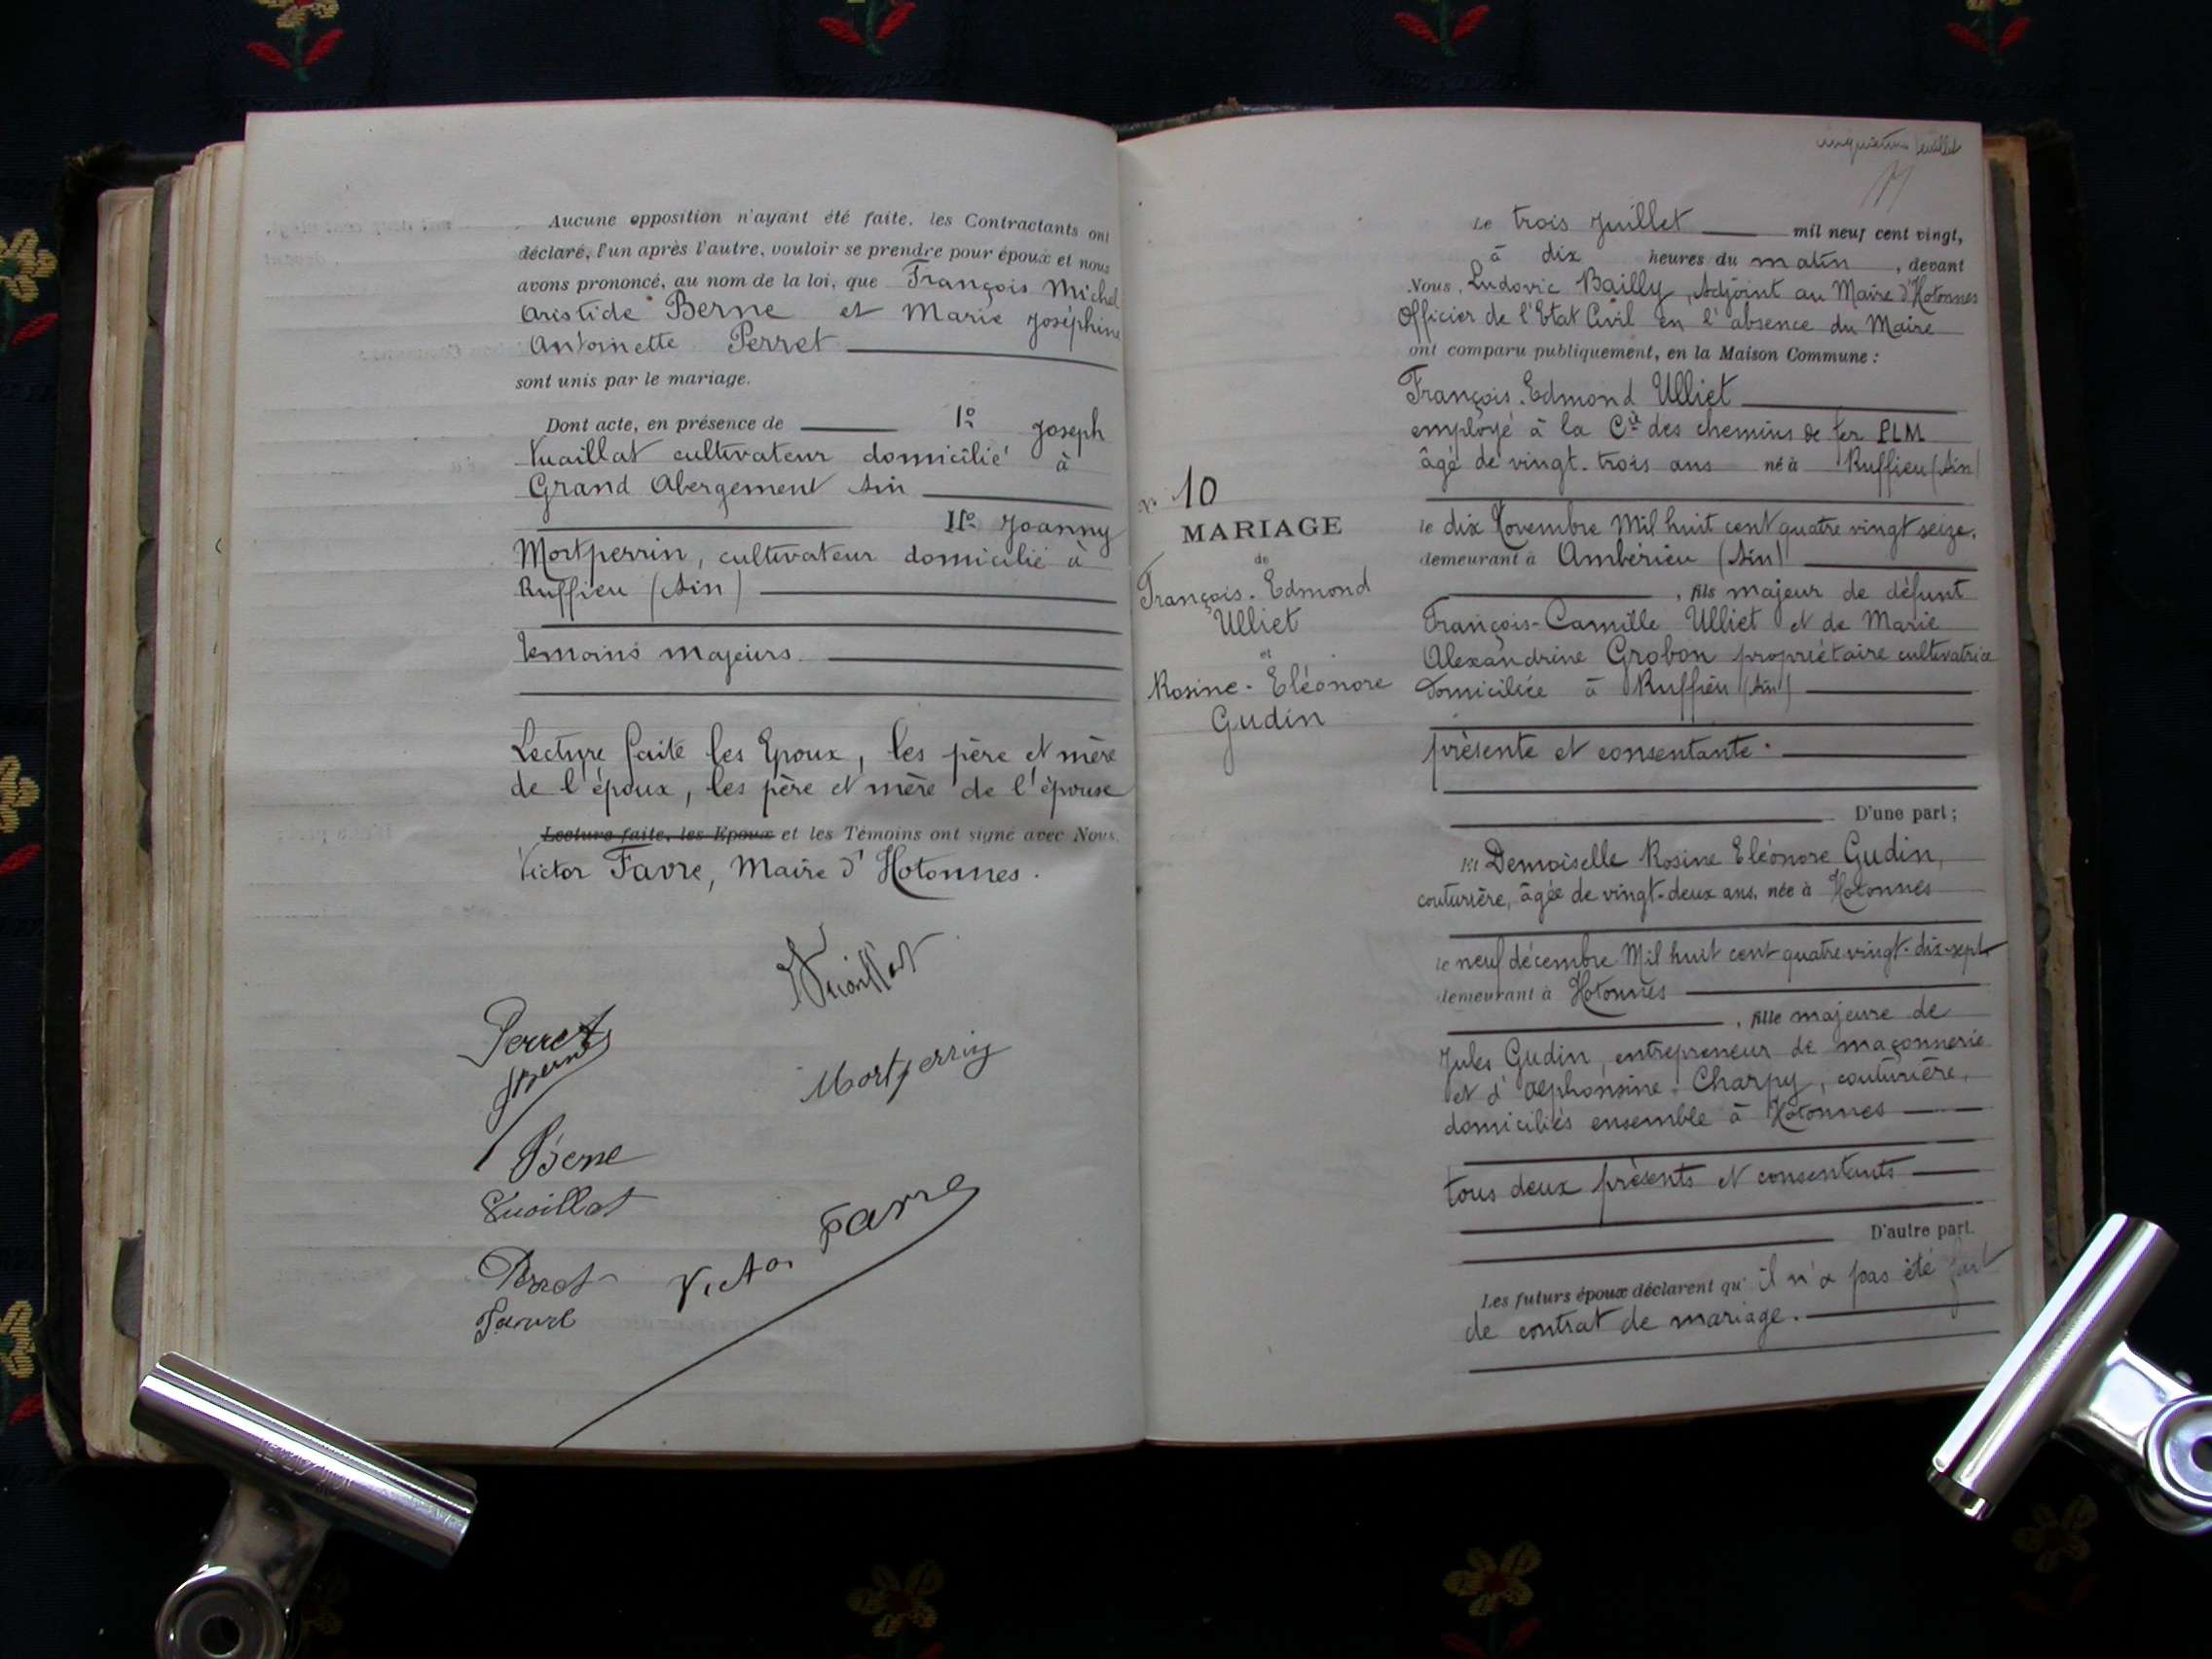 Aucune opposition n'ayant été faite, les Contractants ont
déclaré, l'un après l'autre, vouloir se prendre pour époux et nous
avons prononcé, au nom de la loi, que François Michel
Aristide Berne et Marie Joséphine
Antoinette Perret
sont unis par le mariage.
Dont acte, en présence de 1º Joseph
Vuaillat cultivateur domicilié à
Grand Abergement Ain
IIº Joanny
Mortperrin, cultivateur domicilié à
Ruffieu (Ain)
témoins majeurs.
Lecture faite les Epoux, les père et mère
de l'époux, les père et mère de l'épouse
Lecture faite, les Epoux et les Témoins ont signé avec Nous.
Victor Favre, Maire d'Hotonnes.
Vuaillat
Perret
Berne
Mortperrin
Berne
Vuaillat
Perret
Favre
Victor Favre
cinquième feuillet
Le trois Juillet mil neuf cent vingt,
à dix heures du matin, devant
Nous, Ludovic Bailly, Adjoint au Maire d'Hotonnes
Officier de l'Etat Civil en l'absence du Maire
ont comparu publiquement, en la Maison Commune :
François-Edmond Ulliet
employé à la Cie des chemins de fer PLM
âgé de vingt-trois ans né à Ruffieu (Ain)
le dix Novembre Mil huit cent quatre vingt seize.
demeurant à Ambérieu (Ain)
, fils majeur de défunt
François-Camille Ulliet et de Marie
Alexandrine Grobon propriétaire cultivatrice
domiciliée à Ruffieu (Ain)
présente et consentante.
D'une part ;
Nº 10
MARIAGE
de
François-Edmond
Ulliet
et
Rosine-Eléonore
Gudin
Et Demoiselle Rosine Eléonore Gudin,
couturière, âgée de vingt-deux ans, née à Hotonnes
le neuf décembre Mil huit cent quatre vingt-dix-sept
demeurant à Hotonnes
, fille majeure de
Jules Gudin, entrepreneur de maçonnerie
et d'Alphonsine Charpy, couturière,
domiciliés ensemble à Hotonnes
tous deux présents et consentants
D'autre part.
Les futurs époux déclarent qu'il n'a pas été fait
de contrat de mariage.